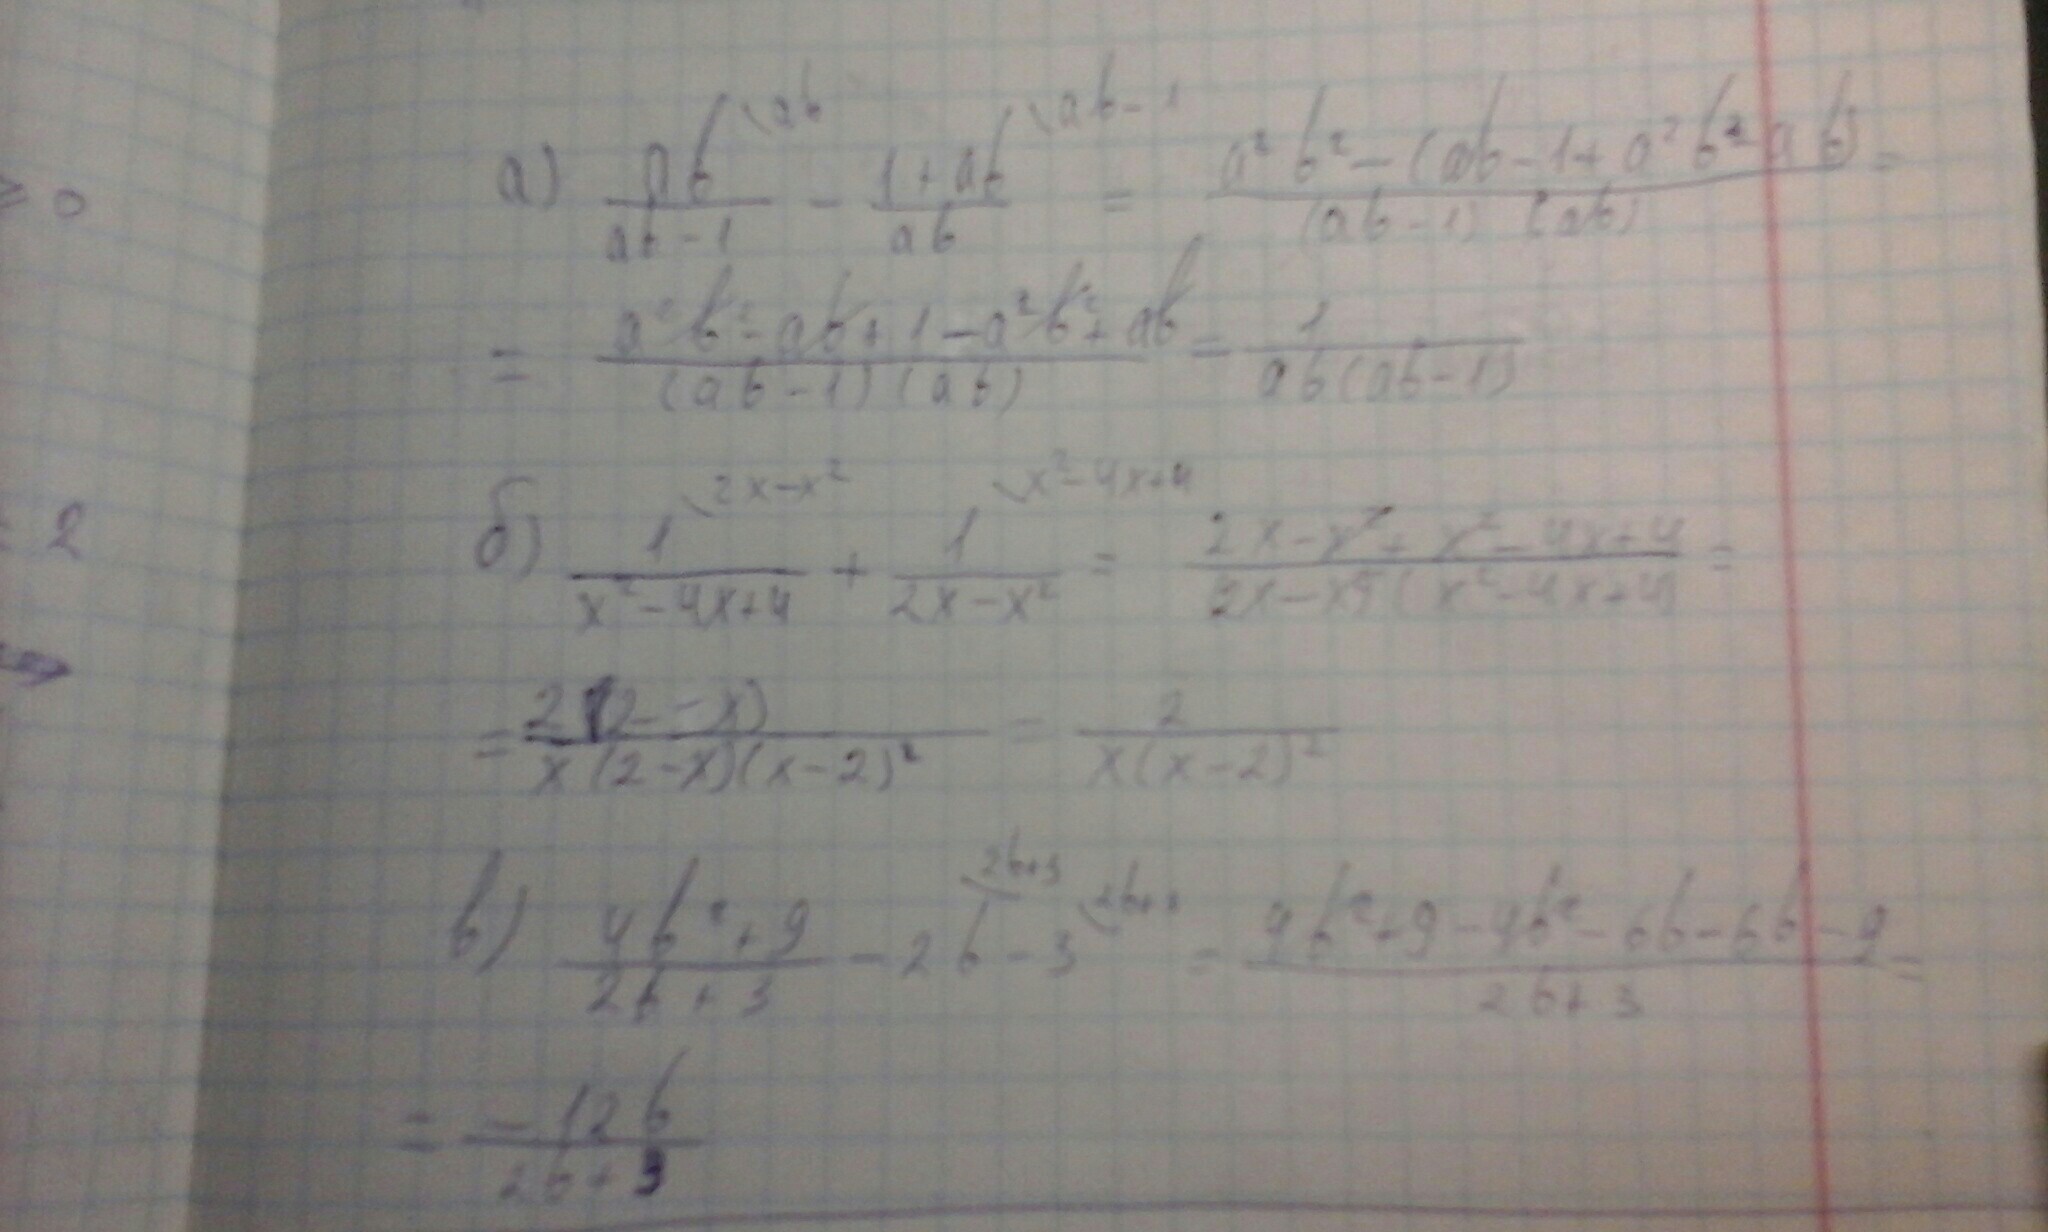 ≥ 0
= 2
⇒
а) ab/(ab-1) \ab - (1+ab)/ab \ab-1 = (a²b²-(ab-1+a²b²-ab))/((ab-1)(ab)) =
= (a²b²-ab+1-a²b²+ab)/((ab-1)(ab)) = 1/(ab(ab-1))
б) 1/(x²-4x+4) \2x-x² + 1/(2x-x²) \x²-4x+4 = (2x-x²+x²-4x+4)/(2x-x²(x²-4x+4)) =
= 2(2-x)/(x(2-x)(x-2)²) = 2/(x(x-2)²)
в) (4b²+9)/(2b+3) - 2b \2b+3 - 3 \2b+3 = (4b²+9-4b²-6b-6b-9)/(2b+3) =
= -12b/(2b+3)